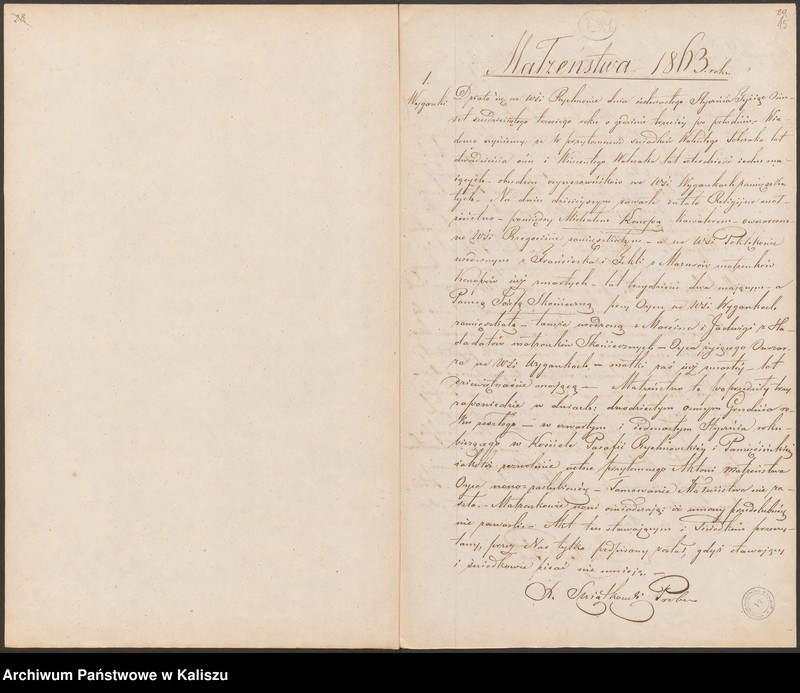 28
29
15
Małżeństwa 1863. roku
1.
Wyganki.
Działo się we Wsi Rychnowie dnia siedmnastego Stycznia Tysiąc Ośm-
set sześćdziesiątego trzeciego roku o godzinie trzeciej po południu. Wia-
domo czyniemy, że w przytomności świadków Walentego lat
dwadzieścia ośm i Wincentego Walczaka lat czterdzieści jeden ma-
jących obudwu wyrownników we Wsi Wygankach zamieszka-
łych. Na dniu dzisiejszym zawarte zostało Religijne mał-
żeństwo pomiędzy Michałem Konopą kawalerem owczarzem
we Wsi zamieszkałym a we Wsi
urodzonym z Franciszka i Tekli z Mazurów małżonków
Konopów już zmarłych lat trzydzieści dwa mającym a
Panną Józefą Skonieczną przy Ojcu we Wsi Wygankach
zamieszkałą tamże urodzoną z Marcina i Jadwigi z Ha-
dadatów małżonków Skoniecznych Ojca żyjącego Owcza-
rza we Wsi Wygankach matki zaś już zmarłej lat
dziewiętnaście mającą Małżeństwo to poprzedziły trzy
zapowiedzie w dniach: dwudziestym ósmym Grudnia ro-
ku zeszłego w czwartym i jedenastym Stycznia roku
bieżącego w Kościele Parafii Rychnowskiej i
jakoteż zezwolenie ustne przytomnego Aktowi małżeństwa
Ojca nowozaślubionej Tamowanie Małżeństwa nie za-
szło. Małżonkowie nowi oświadczają iż umowy przedślubnej
nie zawarli. Akt ten stawającym i Świadkom przeczy-
tany, przez Nas tylko podpisany został, gdyż stawający
i świadkowie pisać nie umieją.
X. Świątkowski Prob.
Archiwum Państwowe w Kaliszu